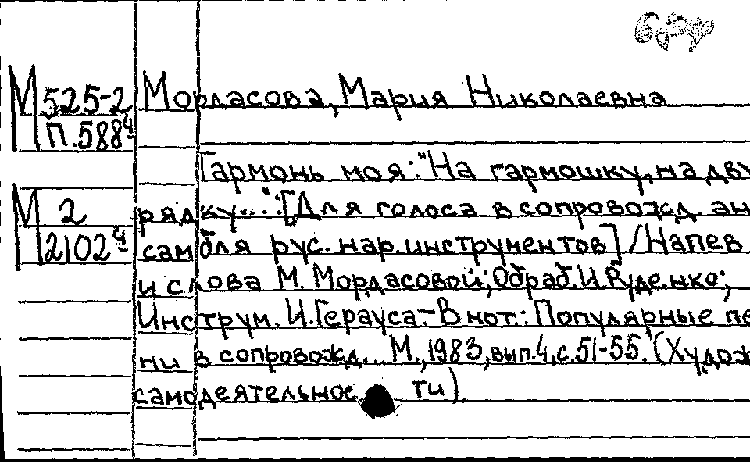 М 525-2 Мордасова, Мария Николаевна
П.588⁴
Гармонь моя: "На гармошку, на дву
М 2 рядку...": [Для голоса в сопровожд. ан
2102⁴ самбля рус. нар. инструментов] / Напев
и слова М. Мордасовой; Обраб. И. Руденко;
Инструм. И. Герауса.- В нот.: Популярные пе
ни в сопровожд... М., 1983, вып.4, с.51-55. (Худож
самодеятельнос ти).